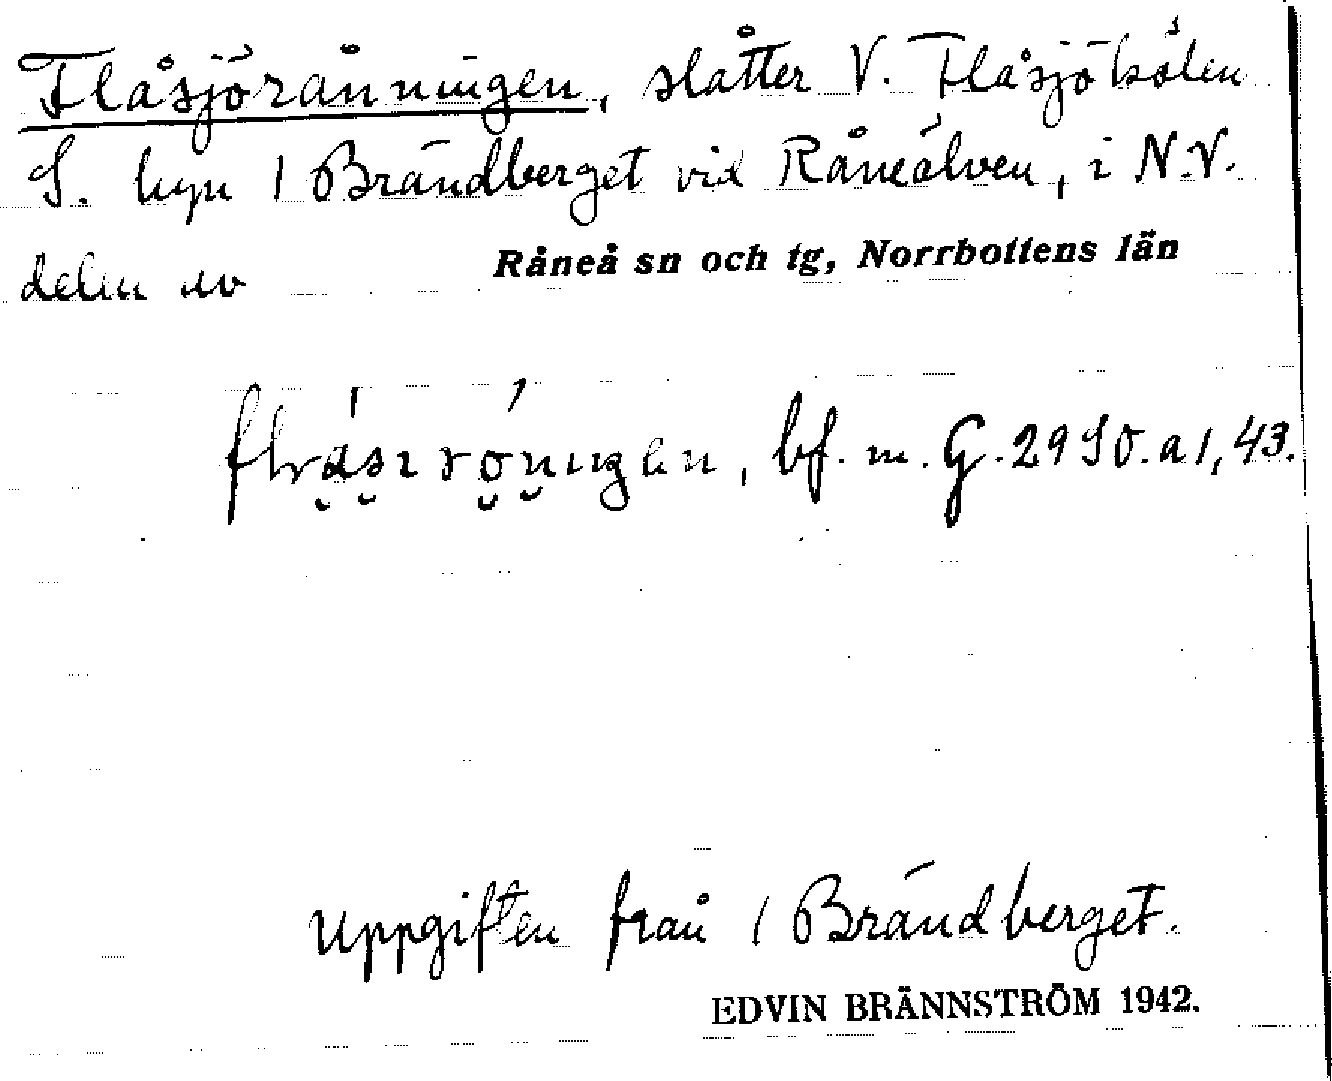 Flåsjöränningen, slåtter V. Flåsjökölen
S. byn 1 Brändberget vid Råneälven, i N.V.
delen av Råneå sn och tg, Norrbottens län
bf. m. G. 2950. a 1, 43.
Uppgiften från 1 Brändberget.
EDVIN BRÄNNSTRÖM 1942.